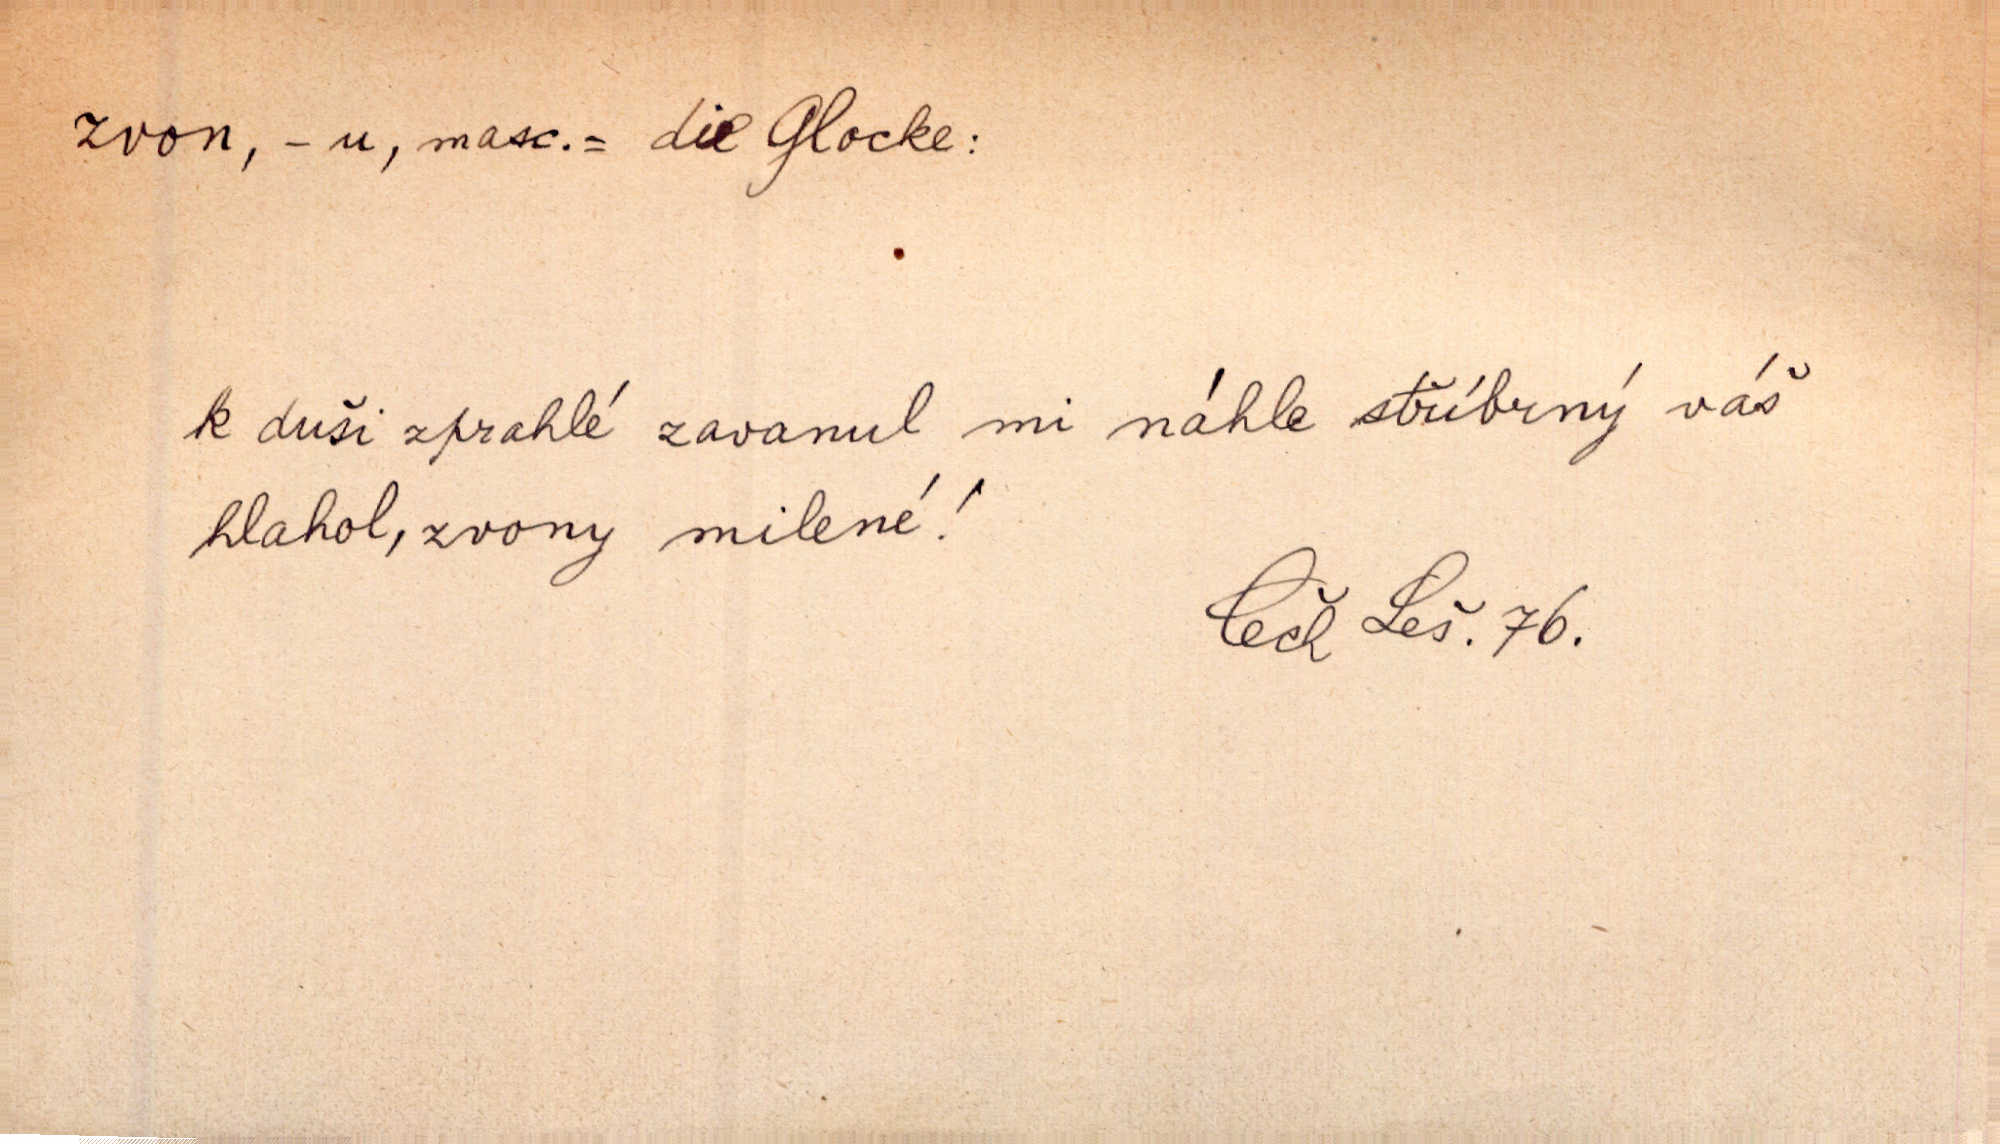 zvon, - u, masc. = die Glocke:
k duši zprahlé zavanul mi náhle stříbrný váš
hlahol, zvony milené!
Čech Leš. 76.